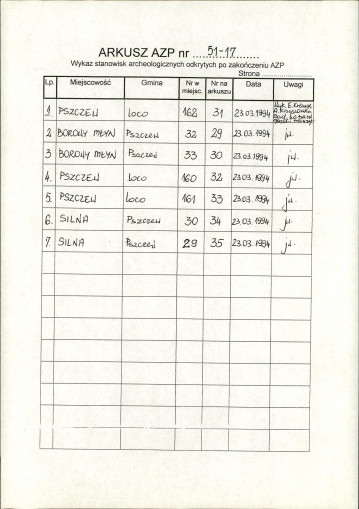 ARKUSZ AZP nr 51-17
Wykaz stanowisk archeologicznych odkrytych po zakończeniu AZP
Strona
Lp. Miejscowość Gmina Nr w miejsc. Nr na arkuszu Data Uwagi
1 PSZCZEW LOCO 162 31 23.03.1994
2 BOROWY MŁYN PSZCZEW 32 29 23.03.1994 j.w.
3 BOROWY MŁYN PSZCZEW 33 30 23.03.1994 j.w.
4. PSZCZEW LOCO 160 32 23.03.1994 j.w.
5. PSZCZEW LOCO 161 33 23.03.1994 j.w.
6. SILNA PSZCZEW 30 34 23.03.1994 j.w.
7. SILNA PSZCZEW 29 35 23.03.1994 j.w.